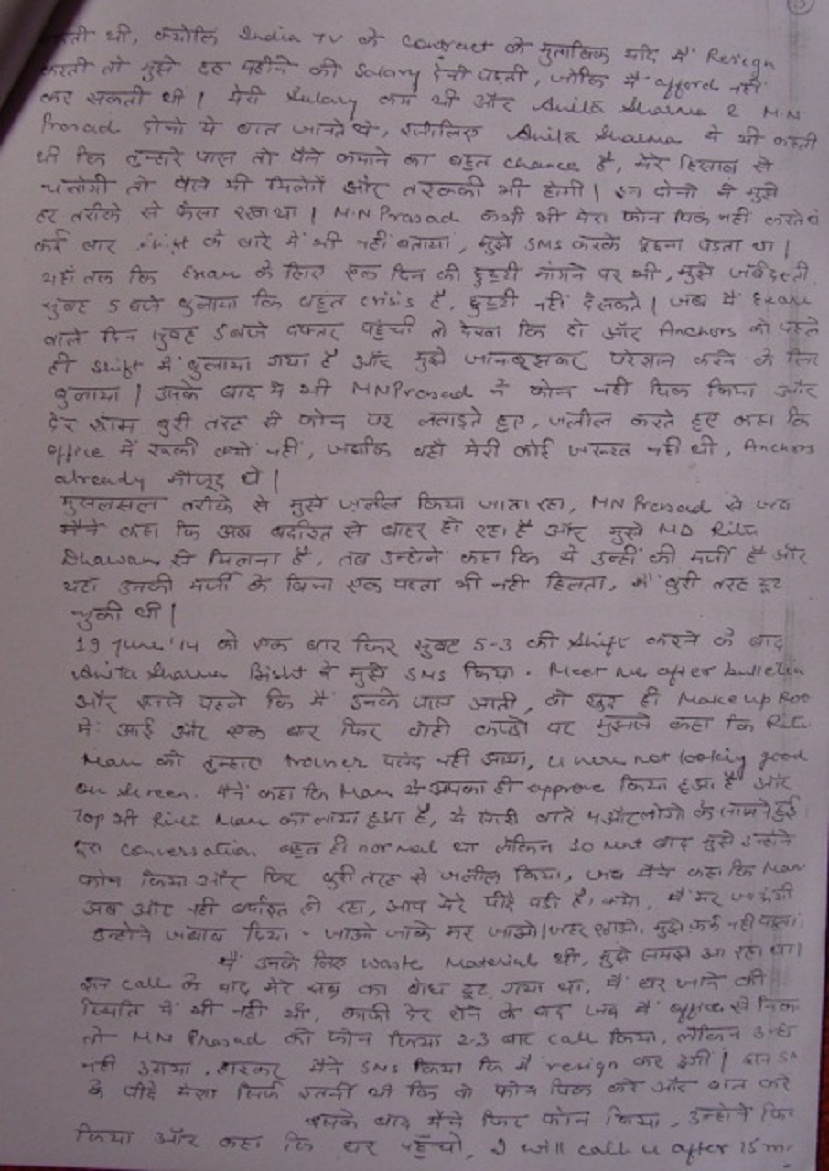 थी, क्योंकि India TV के Contract के मुताबिक यदि मैं Resign
करती तो मुझे छह महीने की Salary देनी पड़ती, जोकि मैं afford नहीं
कर सकती थी। मेरी Salary कम थी और Anita Sharma & M.N
Prasad दोनों ये बात जानते थे, इसलिए Anita Sharma ये भी कहती
थी कि तुम्हारे पास तो पैसे कमाने का बहुत chance है, मेरे हिसाब से
चलोगी तो पैसे भी मिलेंगे और तरक्की भी होगी। इन दोनों ने मुझे
हर तरीके से फंसा रखा था। M.N Prasad कभी भी मेरा फोन पिक नहीं करते थे
कई बार shift के बारे में भी नहीं बताया, मुझे SMS करके पूछना पड़ता था।
यहाँ तक कि Exam के लिए एक दिन की छुट्टी मांगने पर भी, मुझे जबर्दस्ती
सुबह 5 बजे बुलाया कि बहुत crisis है, छुट्टी नहीं दे सकते। जब मैं Exam
वाले दिन सुबह 5 बजे दफ्तर पहुंची तो देखा कि दो और Anchors को पहले
ही shift में बुलाया गया है और मुझे जानबूझकर परेशान करने के लिए
बुलाया। उसके बाद में भी MN Prasad ने फोन नहीं पिक किया और
देर शाम बुरी तरह से फोन पर लताड़ते हुए, जलील करते हुए कहा कि
office में रुकी क्यों नहीं, जबकि वहाँ मेरी कोई जरूरत नहीं थी, Anchors
already मौजूद थे।
मुसलसल तरीके से मुझे जलील किया जाता रहा, MN Prasad से जब
मैंने कहा कि अब बर्दाश्त से बाहर हो रहा है और मुझे MD Ritu
Dhawan से मिलना है, तब उन्होंने कहा कि ये उन्हीं की मर्जी है और
यहां उनकी मर्जी के बिना एक पत्ता भी नहीं हिलता, मैं बुरी तरह टूट
चुकी थी।
19 June '14 को एक बार फिर सुबह 5-3 की shift करने के बाद
Anita Sharma Bisht ने मुझे SMS किया - Meet me after bulletin
और इससे पहले कि मैं उनके पास जाती, वो खुद ही Make up Roo
में आई और एक बार फिर वोही कपड़ों पर मुझसे कहा कि Ritu
Mam को तुम्हारा trouser पसंद नहीं आया, u were not looking good
on screen. मैंने कहा कि Mam ये आपका ही approve किया हुआ है और
Top भी Ritu Mam का लाया हुआ है, ये सारी बातें 4 और लोगों के सामने हुई
इस conversation बहुत ही normal था लेकिन 10 बाद मुझे उन्होंने
फोन किया और फिर बुरी तरह से जलील किया, जब मैंने कहा कि Mam
अब और नहीं बर्दाश्त हो रहा, आप मेरे पीछे पड़ी हैं, मैं मर जाऊंगी
उन्होंने जवाब दिया - जाओ जाके मर जाओ। जहर खाओ, मुझे फर्क नहीं पड़ता
मैं उनके लिए waste Material थी, मुझे समझ आ रहा था।
इस call के बाद मेरे सब्र का बांध टूट गया था, मैं घर जाने की
स्थिति में भी नहीं थी, काफी देर रोने के बाद जब मैं office से निक
तो MN Prasad को फोन किया 2-3 बार call किया, लेकिन उन्हों
नहीं उठाया, हारकर मैंने SMS किया कि मैं resign कर दूंगी। इस SM
के पीछे मंशा सिर्फ इतनी थी कि वो फोन पिक करें और बात करें
उसके बाद मैंने फिर फोन किया, उन्होंने पिक
किया और कहा कि घर पहुँचो, I will call u after 15 m